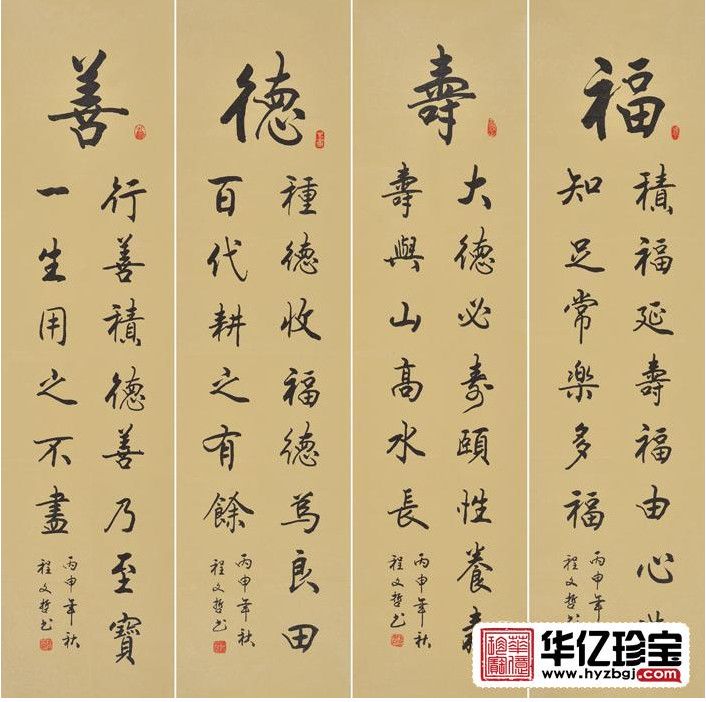 福
積福延壽福由心
知足常樂多福
丙申年
程文哲
壽
大德必寿頤性養壽
壽與山高水長
丙申年秋
程文哲书
德
種德收福德為良田
百代耕之有餘
丙申年秋
程文哲书
善
行善積德善乃至寶
一生用之不盡
丙申年秋
程文哲书
华亿珍宝
www.hyzbgj.com